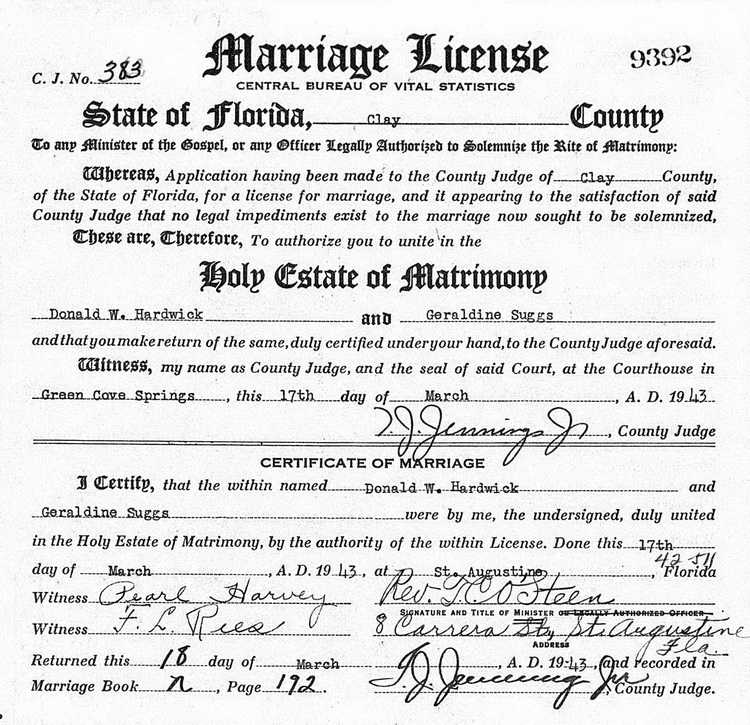 Marriage License
9392
C. J. No. 383
CENTRAL BUREAU OF VITAL STATISTICS
State of Florida, Clay County
To any Minister of the Gospel, or any Officer Legally Authorized to Solemnize the Rite of Matrimony:
Whereas, Application having been made to the County Judge of Clay County,
of the State of Florida, for a license for marriage, and it appearing to the satisfaction of said
County Judge that no legal impediments exist to the marriage now sought to be solemnized,
These are, Therefore, To authorize you to unite in the
Holy Estate of Matrimony
Donald W. Hardwick and Geraldine Suggs
and that you make return of the same, duly certified under your hand, to the County Judge aforesaid.
Witness, my name as County Judge, and the seal of said Court, at the Courthouse in
Green Cove Springs, this 17th day of March, A. D. 1943
T. J. Jennings Jr, County Judge
CERTIFICATE OF MARRIAGE
I Certify, that the within named Donald W. Hardwick and
Geraldine Suggs were by me, the undersigned, duly united
in the Holy Estate of Matrimony, by the authority of the within License. Done this 17th
day of March, A. D. 1943, at St. Augustine, Florida
Witness Pearl Harvey Rev. T. C. O Steen
SIGNATURE AND TITLE OF MINISTER OR LEGALLY AUTHORIZED OFFICER
Witness F. L. Ries 8 Carrera St, St. Augustine
ADDRESS
Fla.
Returned this 18 day of March, A. D. 1943, and recorded in
Marriage Book N, Page 192. T. J. Jennings Jr, County Judge.